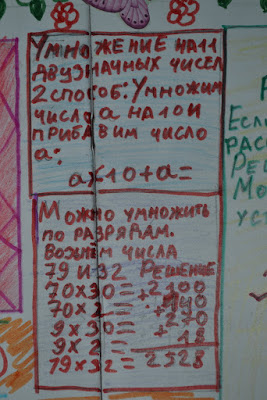 Умножение на 11
двузначных чисел
2 способ: Умножим
число а на 10 и
прибавим число
а:
а×10+а=
Можно умножить
по разрядам.
Возьмём числа
79 и 32 Решение
70×30=2100
70×2=+140
9×30=+270
9×2=+18
79×32=2528
Если